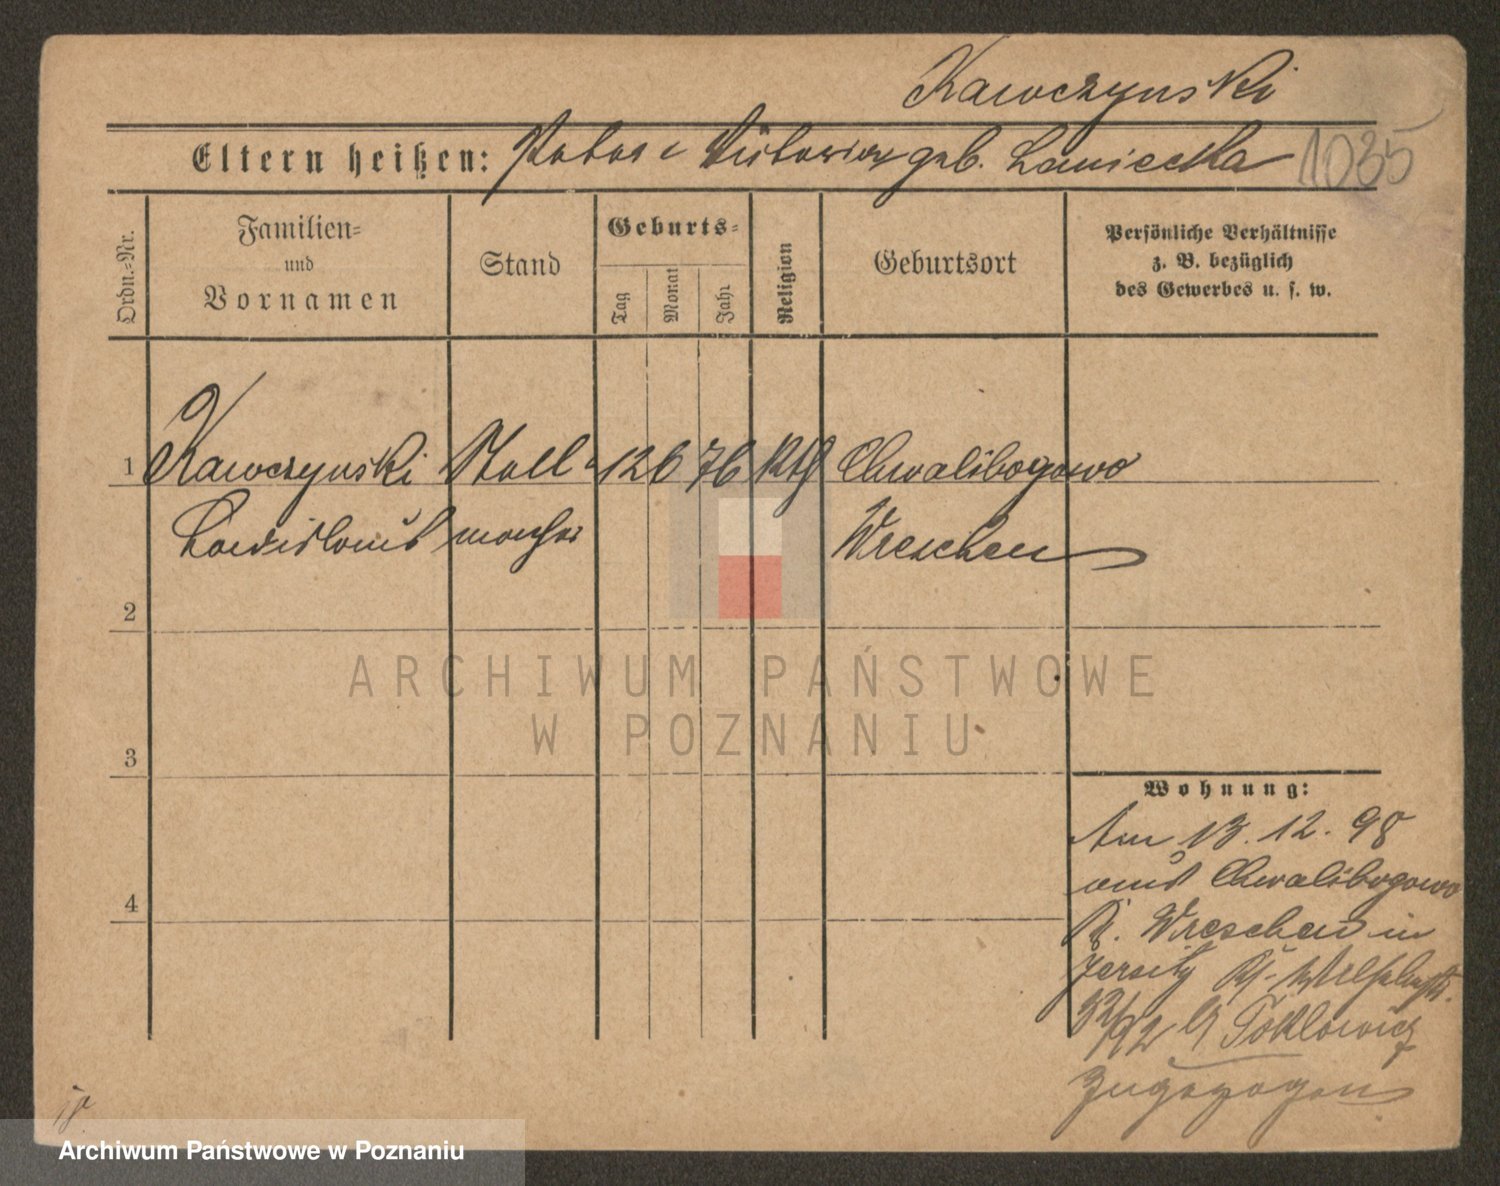 Kawczynski
Eltern heißen: geb. Laniecka 1035
Ordn.-Nr.
Familien-
und
Vornamen
Stand
Geburts-
Tag
Monat
Jahr
Religion
Geburtsort
Persönliche Verhältnisse
z. B. bezüglich
des Gewerbes u. s. w.
1 Kawczynski Stell 12 6 76 Kth Chwalibogowo
Ladislaus macher Wreschen
2
ARCHIWUM PAŃSTWOWE
W POZNANIU
3
Wohnung:
Am 13. 12. 98
aus Chwalibogowo
4
Kr. Wreschen in
Jersitz
zugezogen
Archiwum Państwowe w Poznaniu